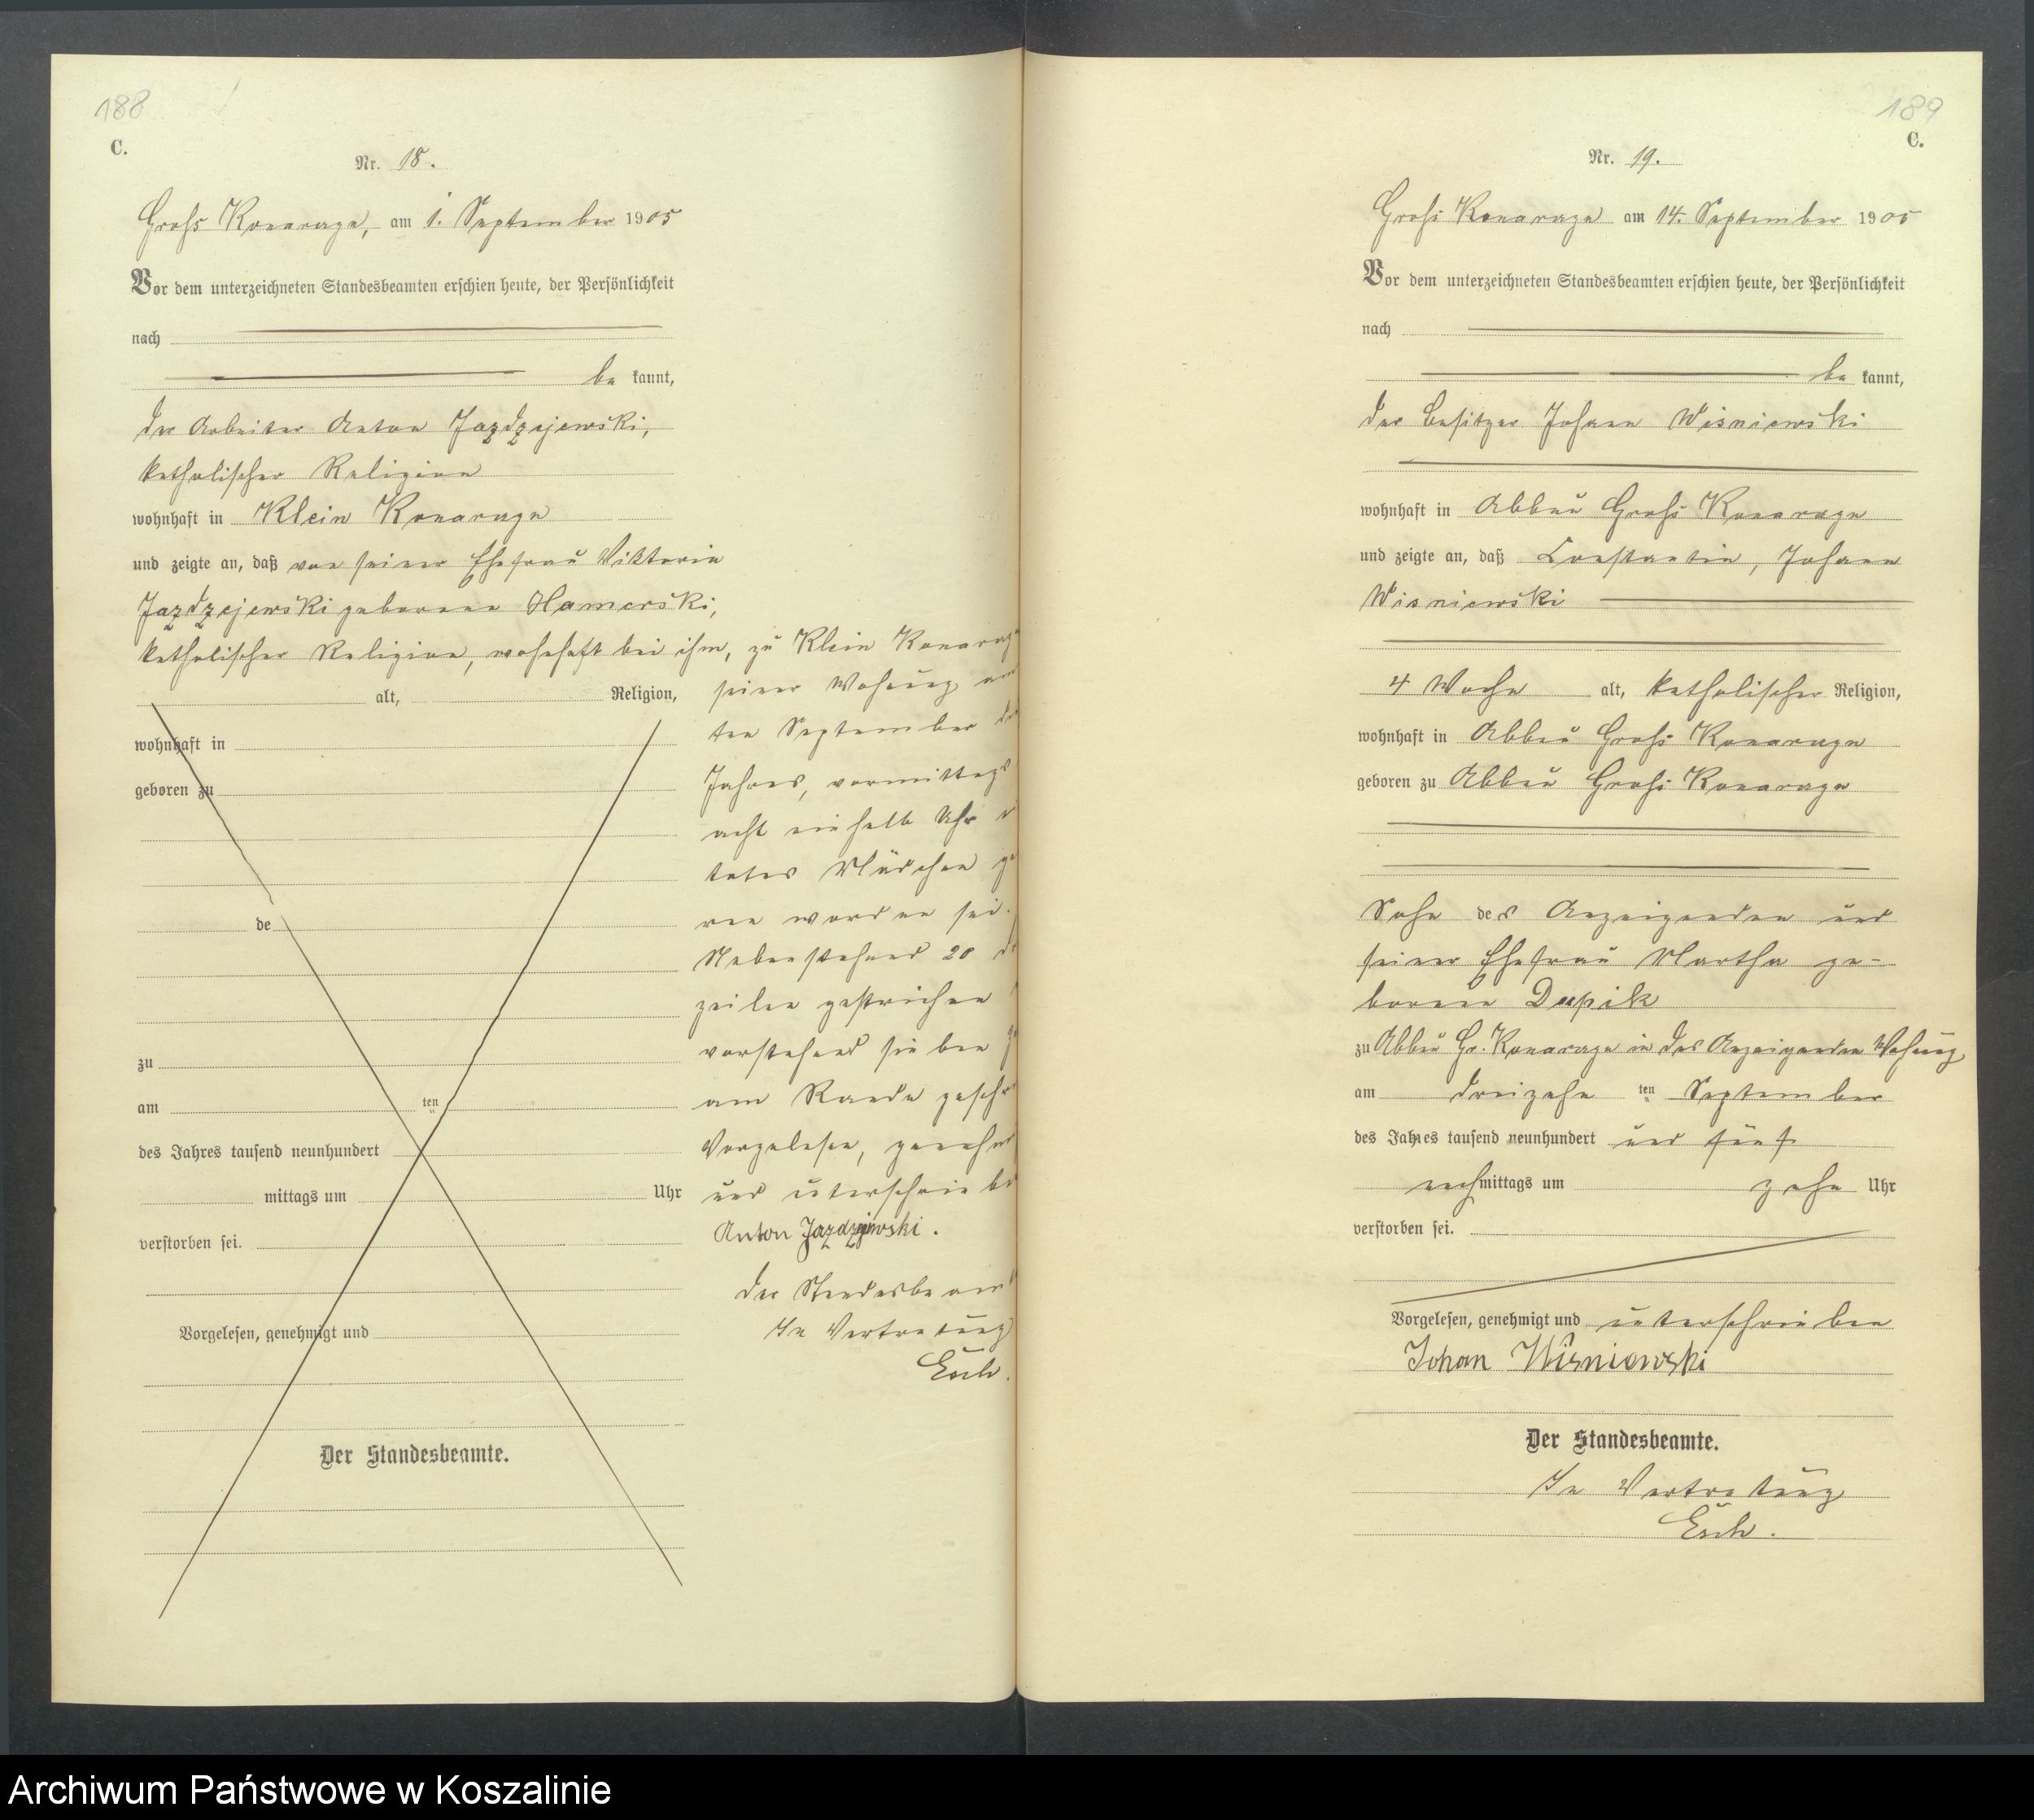 188
C.
Nr. 18.
Groß Konarczyn, am 1. September 1905
Vor dem unterzeichneten Standesbeamten erschien heute, der Persönlichkeit
nach
be kannt,
der Arbeiter Anton Jazdzejewski,
katholischer Religion
wohnhaft in Klein Konarczyn
und zeigte an, daß von seiner Ehefrau Viktoria
Jazdzejewski geborene Hamerski,
katholischer Religion, wohnhaft bei ihm, zu Klein
alt, Religion,
seiner Wohnung
wohnhaft in
ten September
geboren zu
Jahres, vormittags
acht einhalb Uhr
totes Mädchen
de
ren worden sei.
Nebenstehend 20
zeilen gestrichen
zu
vorstehend sieben
am ten
am Rande
des Jahres tausend neunhundert
Vorgelesen,
mittags um Uhr
und
verstorben sei.
Anton Jazdzejewski.
Der
Vorgelesen, genehmigt und
In Vertretung
Esch.
Der Standesbeamte.
189
C.
Nr. 19.
Groß Konarczyn am 14. September 1905
Vor dem unterzeichneten Standesbeamten erschien heute, der Persönlichkeit
nach
be kannt,
der Besitzer Johann Wisniewski
wohnhaft in Abbau Groß Konarczyn
und zeigte an, daß Constantin, Johann
Wisniewski
4 Woche alt, katholischer Religion,
wohnhaft in Abbau Groß Konarczyn
geboren zu Abbau Groß Konarczyn
Sohn des Anzeigenden und
seiner Ehefrau Martha ge-
borene
zu Abbau Gr. Konarczyn in des Anzeigenden Wohnung
am dreizehn ten September
des Jahres tausend neunhundert und fünf
nachmittags um zehn Uhr
verstorben sei.
Vorgelesen, genehmigt und unterschrieben
Johan Wisniewski
Der Standesbeamte.
In Vertretung
Esch.
Archiwum Państwowe w Koszalinie